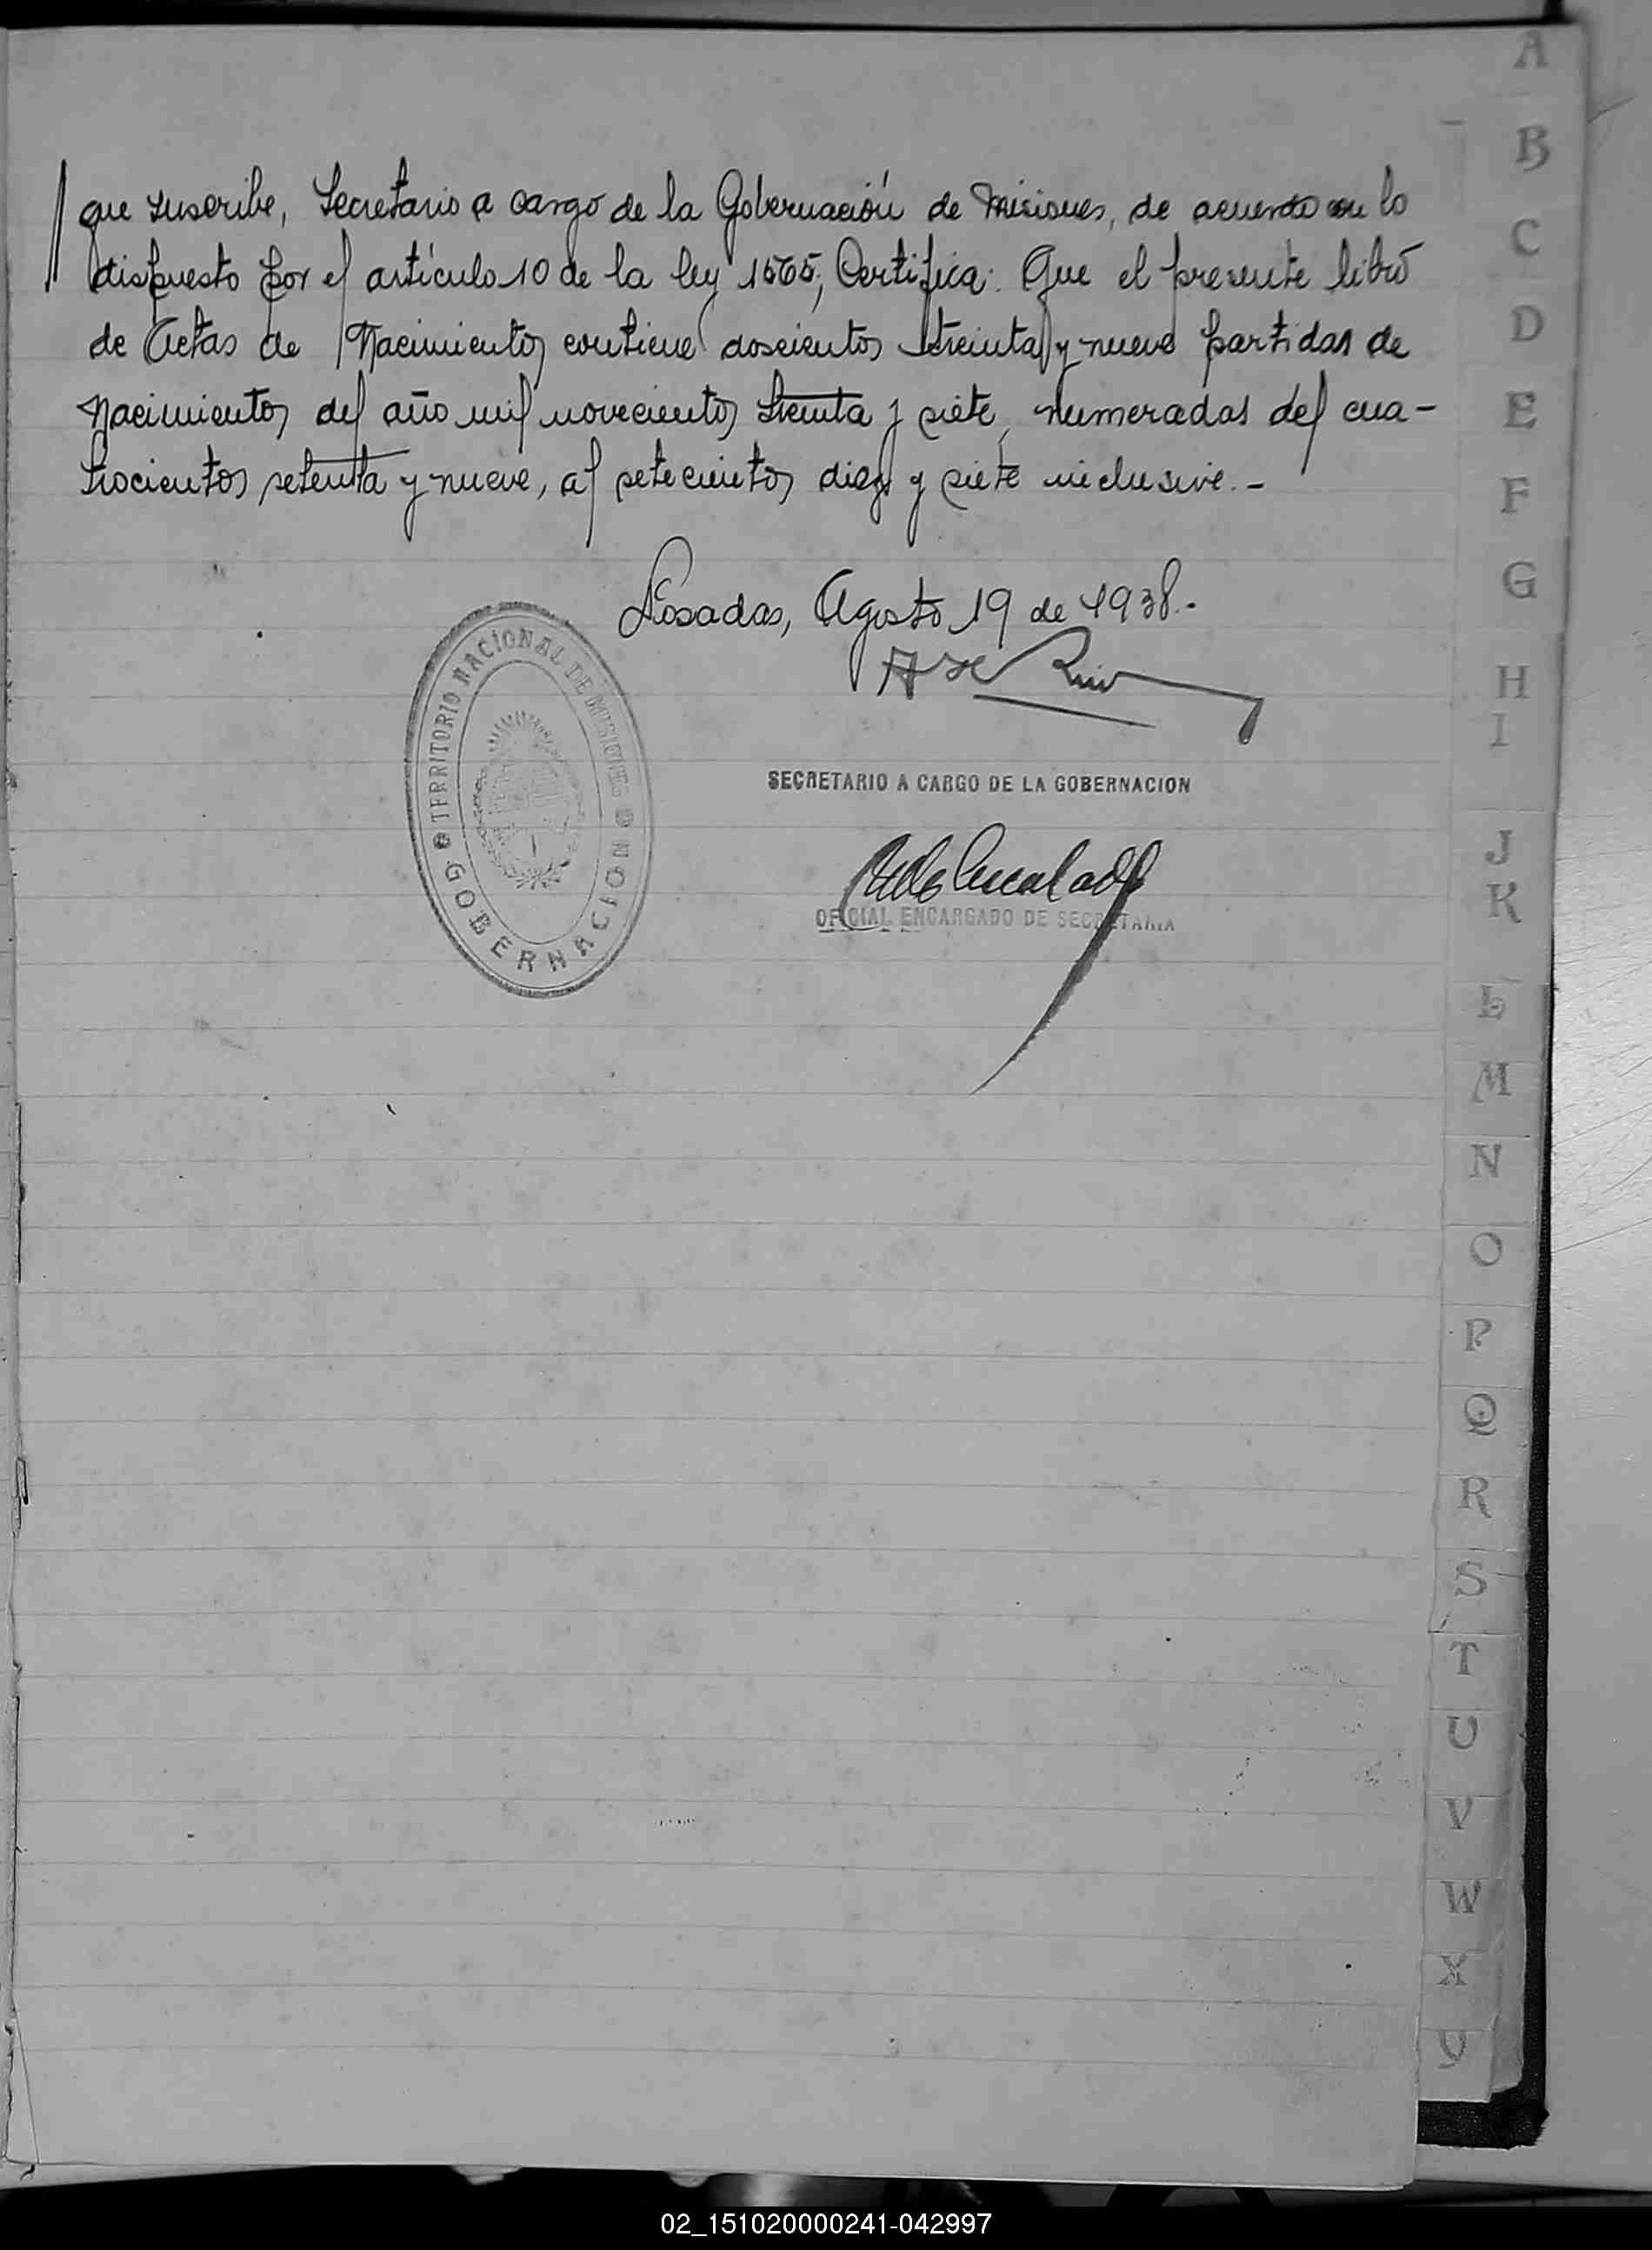 que suscribe, Secretario a cargo de la Gobernación de Misiones, de acuerdo con lo
dispuesto por el artículo 10 de la ley 1565, Certifica: Que el presente libro
de Actas de Nacimientos contiene doscientos treinta y nueve partidas de
Nacimientos del año mil novecientos treinta y siete, numeradas del cua-
trocientos setenta y nueve, al setecientos diez y siete inclusive.-
Posadas, Agosto 19 de 1938.-
SECRETARIO A CARGO DE LA GOBERNACION
OFICIAL ENCARGADO DE SECRETARIA
TERRITORIO NACIONAL DE MISIONES
GOBERNACION
A
B
C
D
E
F
G
H
I
J
K
L
M
N
O
P
Q
R
S
T
U
V
W
X
Y
02_151020000241-042997